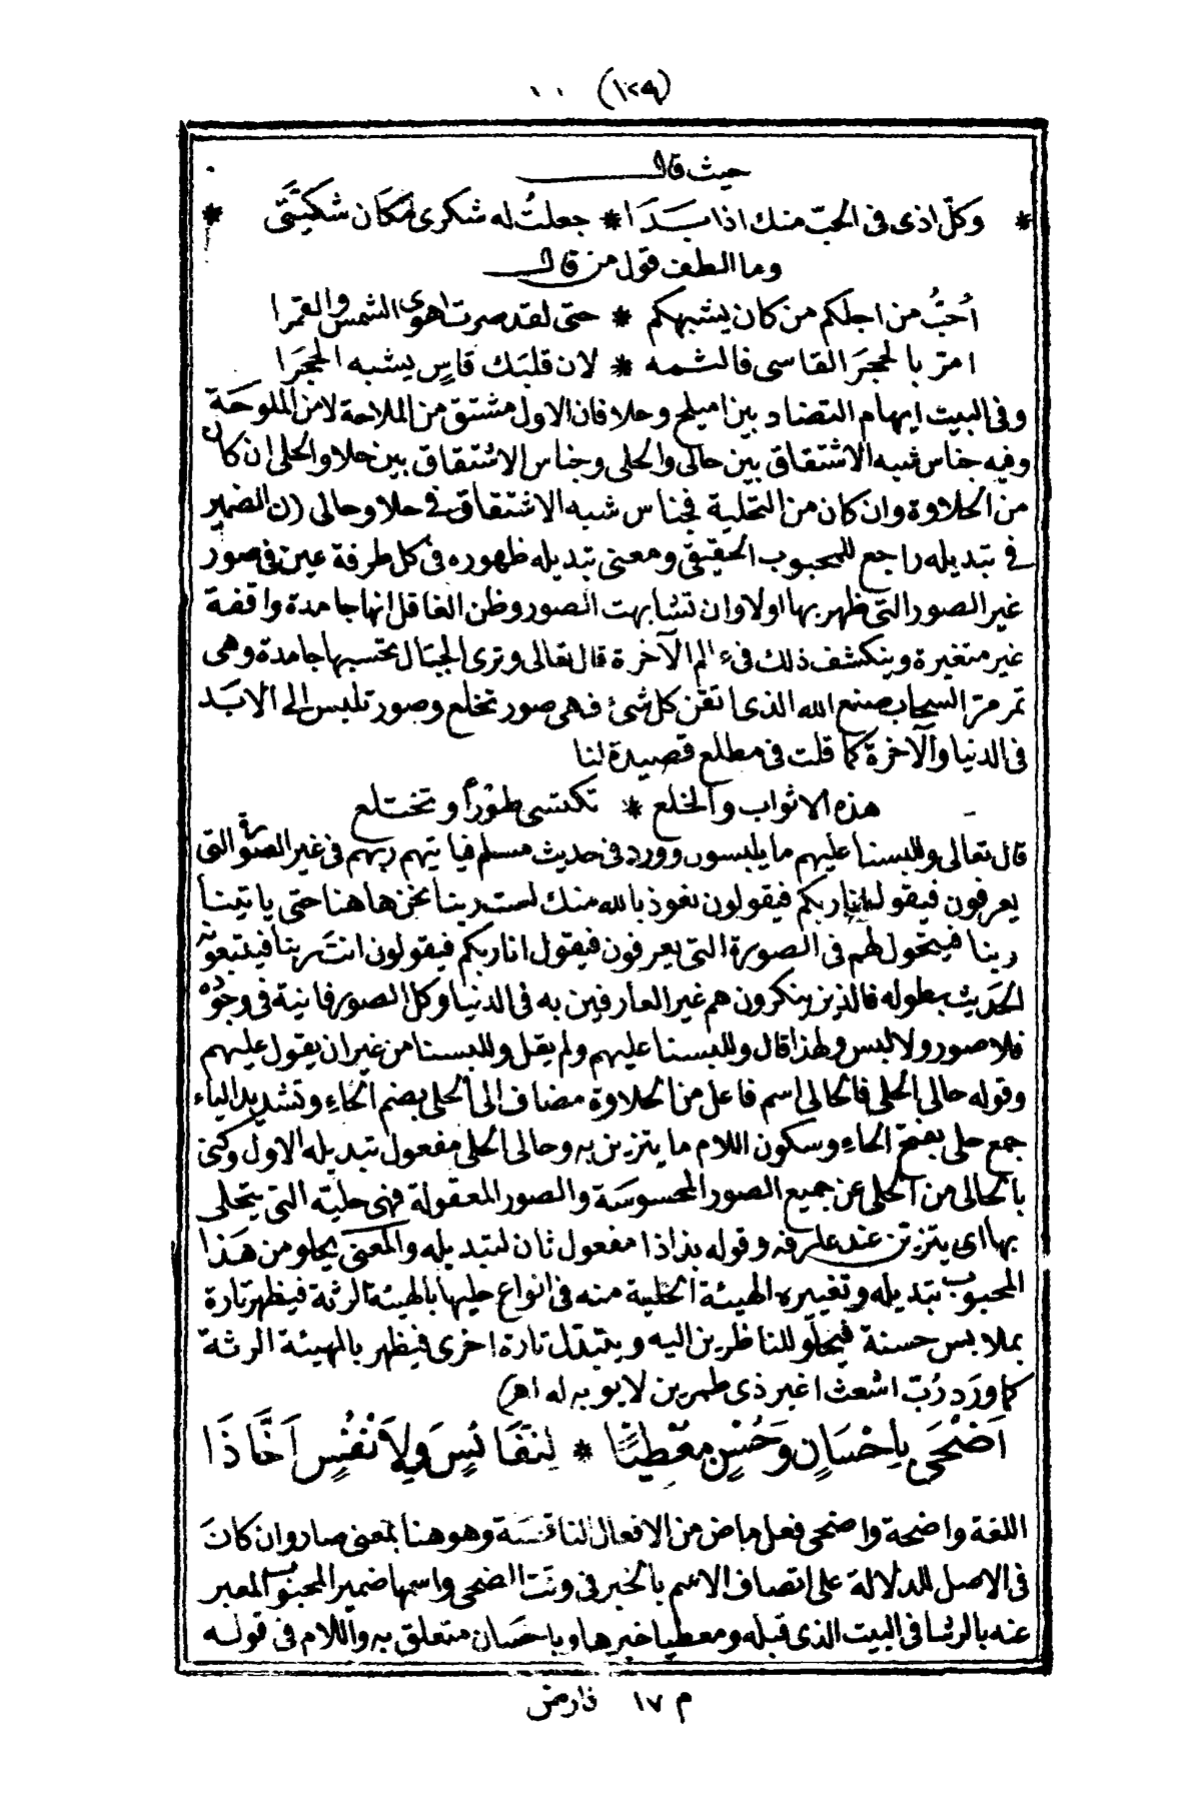 (١٢٩)
حيث قال
* وكلّ اذى فى الحبّ منك اذا بَدَا * جعلتُ له شكرى مكان شكيّتى *
وما الطف قول من قال
اُحبُّ من اجلكم من كان يشبهكم * حتى لقد صرت اهوى الشمس والقمرا
امرّ بالحجَر القاسى فالثمه * لان قلبَك قاسٍ يشبه الحجَرَا
وفى البيت ايهام التضاد بين اميلح وحلا فان الاول مشتق من الملاحة لا من الملوحَة
وفيه جناس شبه الاشتقاق بين حالى والحلى وجناس الاشتقاق بين حلا والحلى ان كان
من الحلاوة وان كان من التحلية فجناس شبه الاشتقاق فى حلا وحالى (ن) الضمير
فى تبديله راجع للمحبوب الحقيقى ومعنى تبديله ظهوره فى كل طرفة عين فى صور
غير الصور التى ظهر بها اولا وان تشابهت الصور وظن الغافل انها جامدة واقفة
غير متغيرة وينكشف ذلك فى عالم الآخرة قال تعالى وترى الجبال تحسبها جامدة وهى
تمر مرّ السحاب صنع الله الذى اتقن كل شئ فهى صور تخلع وصور تلبس الى الابَد
فى الدنيا والآخرة كما قلت فى مطلع قصيدة لنا
هذه الاثواب والخلع * تكتسى طوْراً وتختلع
قال تعالى وللبسنا عليهم ما يلبسون وورد فى حديث مسلم فياتيهم ربهم فى غير الصورة التى
يعرفون فيقول انا ربكم فيقولون نعوذ بالله منك لست ربنا نحن هاهنا حتى ياتينا
ربنا فيتحول لهم فى الصورة التى يعرفون فيقول انا ربكم فيقولون انت ربنا فيتبعونه
الحَديث بطوله فالذين ينكرون هم غير العارفين به فى الدنيا وكل الصور فانية فى وجوده
فلا صور ولا لبس ولهذا قال وللبسنا عليهم ولم يقل وللبسنا من غير ان يقول عليهم
وقوله حالى الحلى فالحالى اسم فاعل من الحلاوة مضاف الى الحلى بضم الحاء وتشديد الياء
جمع حلى بفتح الحاء وسكون اللام ما يتزين به وحالى الحلى مفعول تبديله الاول وكنى
بالحالى من الحلى عن جميع الصور المحسوسَة والصور المعقولة فهى حليته التى يتحلى
بها اى يتزين عند عارفه وقوله بذاذا مفعول ثان لتبديله والمعنى يحلو من هَذا
المحبوب تبديله وتغييره الهيئة الحلية منه فى انواع حليها بالهيئة الرثة فيظهر تارة
بملابس حسنة فيحلو للناظرين اليه ويتبدّل تارة اخرى فيظهر بالهيئة الرثة
كما ورَد رُبّ اشعث اغبر ذى طمرين لا يوبه له اهـ)
اَضْحَى بِاِحْسَانٍ وَحُسْنٍ مُعْطِيًا * لِنَفَائِسٍ وَلِاَنْفُسٍ اَخَّاذَا
اللغة واضحة واضحى فعل ماض من الافعال الناقصَة وهو هنا بمعنى صار وان كانَ
فى الاصل للدلالة على اتصاف الاسم بالخبر فى وقت الضحى واسمها ضمير المحبوب المعبر
عنه بالرشا فى البيت الذى قبله ومعطيا خبرها وباحسَان متعلق به واللام فى قوله
م ١٧ فارض